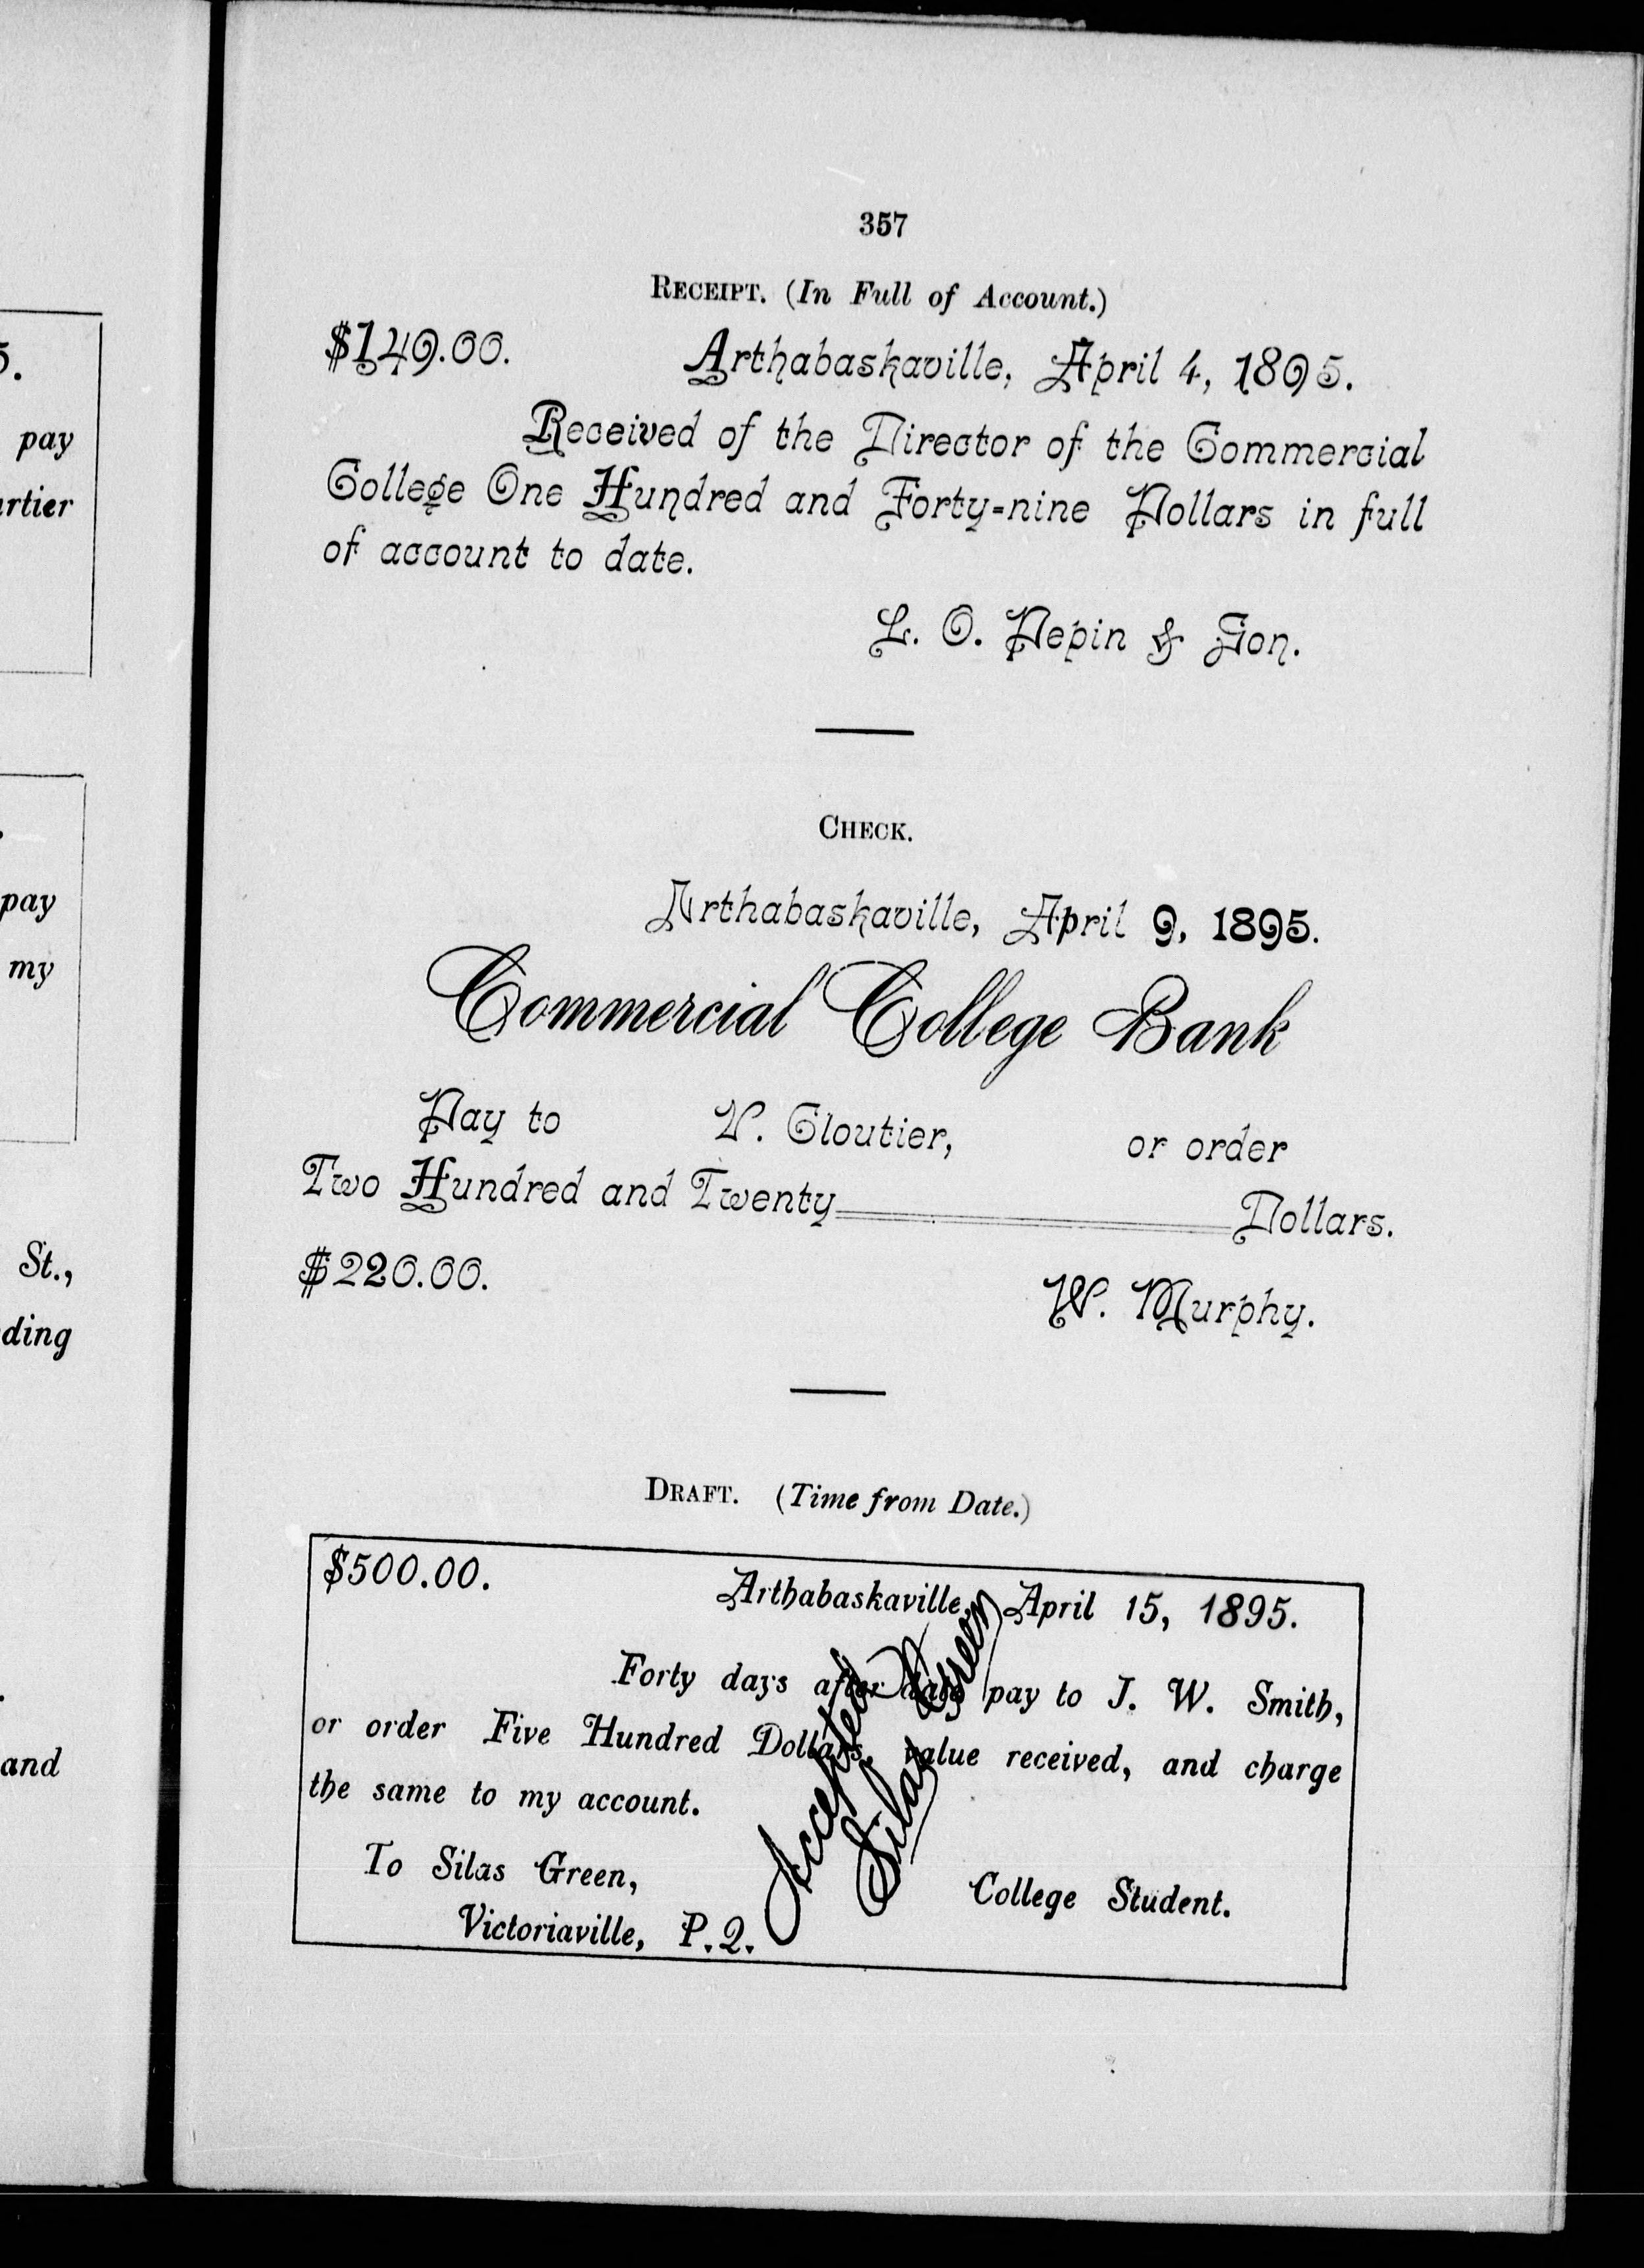 5.
pay
rtier
pay
my
St.,
ding
and
357
RECEIPT. (In Full of Account.)
$149.00. Arthabaskaville, April 4, 1895.
Received of the Director of the Commercial
College One Hundred and Forty=nine Dollars in full
of account to date.
L. O. Pepin & Son.
CHECK.
Arthabaskaville, April 9, 1895.
Commercial College Bank
Pay to V. Cloutier, or order
Two Hundred and Twenty Dollars.
$220.00.
W. Murphy.
DRAFT. (Time from Date.)
$500.00. Arthabaskaville, April 15, 1895.
Forty days after date pay to J. W. Smith,
or order Five Hundred Dollars, value received, and charge
the same to my account.
To Silas Green,
Victoriaville, P. Q.
College Student.
Accepted
Silas Green